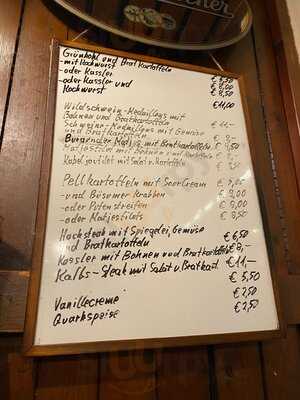 Grünkohl und Bratkartoffeln
-mit Kochwurst € 6,50
-oder Kassler € 8,00
-oder Kassler und € 8,50
Kochwurst
€ 11,00
Wildschwein-Medaillons mit
Bohnen und Bratkartoffeln
Schweine-Medaillons mit Gemüse € 11,-
und Bratkartoffeln
mit Bratkartoffeln
mit Salat u. Kartoffeln
Pellkartoffeln mit SourCream
-und Büsumer Krabben € 8,00
-oder Putenstreifen € 8,00
-oder Matjesfilets € 8,50
Hacksteak mit Spiegelei, Gemüse
und Bratkartoffeln € 6,50
Kassler mit Bohnen und Bratkartoffeln € 8,-
Kalbs-Steak mit Salat u. Bratkart. € 11,-
€ 5,50
Vanillecreme € 2,50
Quarkspeise € 2,50